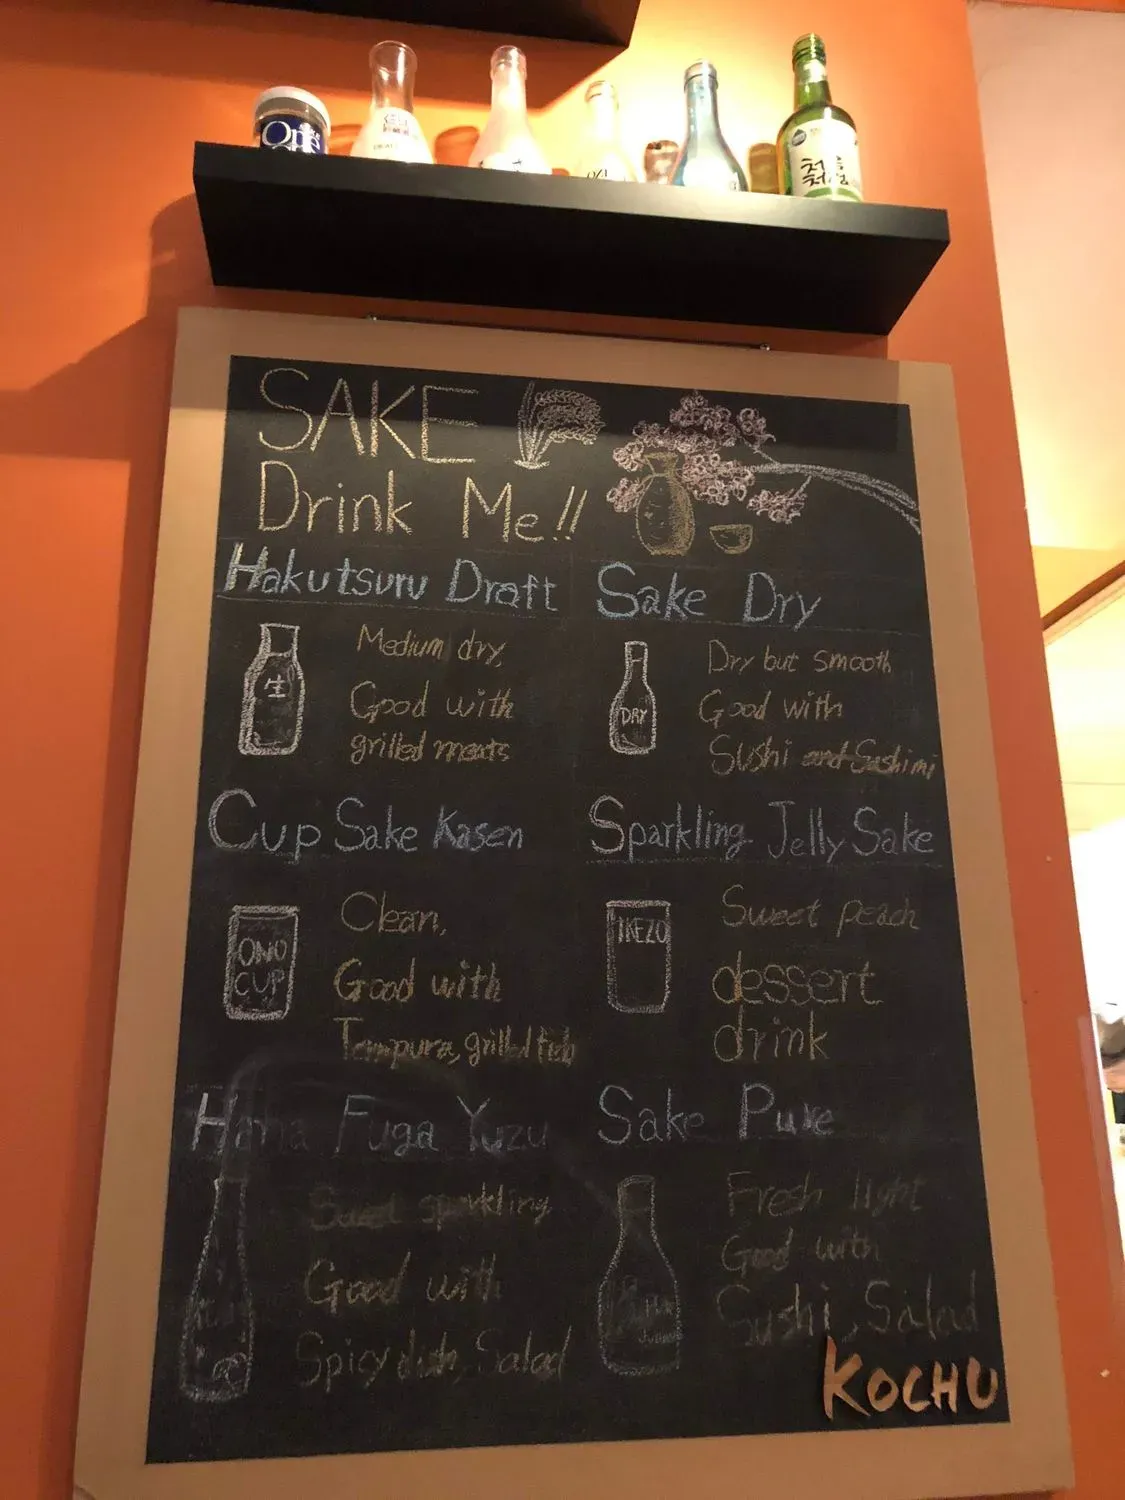 One
SAKE
Drink Me!!
Hakutsuru Draft
生
Medium dry,
Good with
grilled meats
Sake Dry
DRY
Dry but smooth
Good with
Sushi and Sashimi
Cup Sake Kasen
ONO
CUP
Clean,
Good with
Tempura, grilled fish
Sparkling Jelly Sake
IKEZO
Sweet peach
dessert
drink
Hana Fuga Yuzu
Sweet sparkling
Good with
Spicy dish, Salad
Sake Pure
Fresh light
Good with
Sushi, Salad
KOCHU